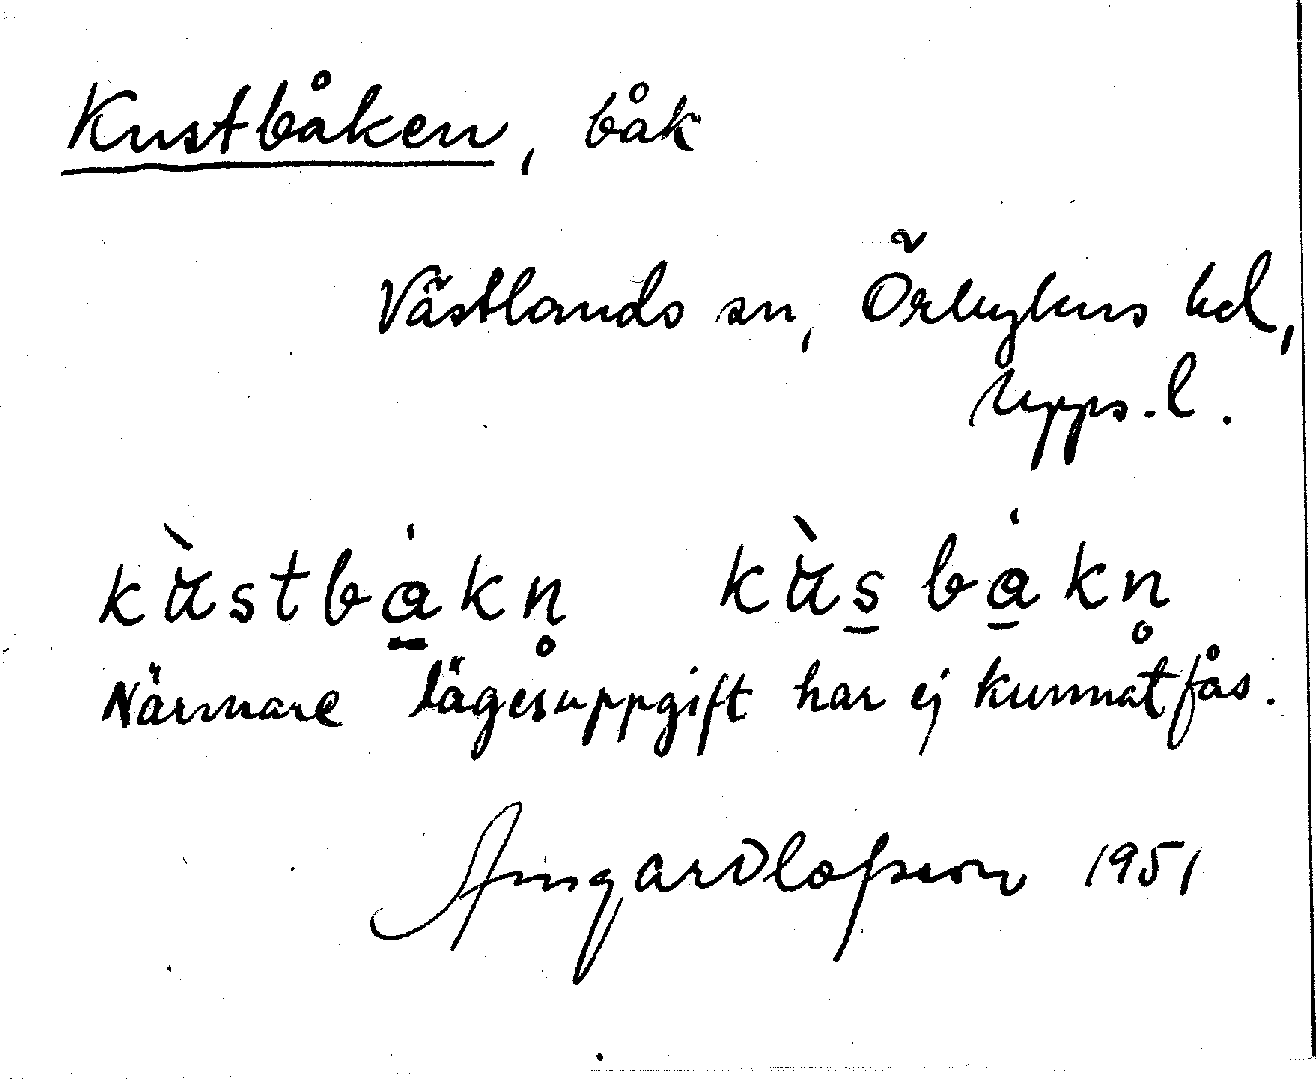 Kustbåken, båk
Västlands sn, Örbyhus hd,
Upps. l.
kùstbạ̊kn̥ kùs̠bạ̊kn̥
Närmare lägesuppgift har ej kunnat fås.
Olofsson 1951